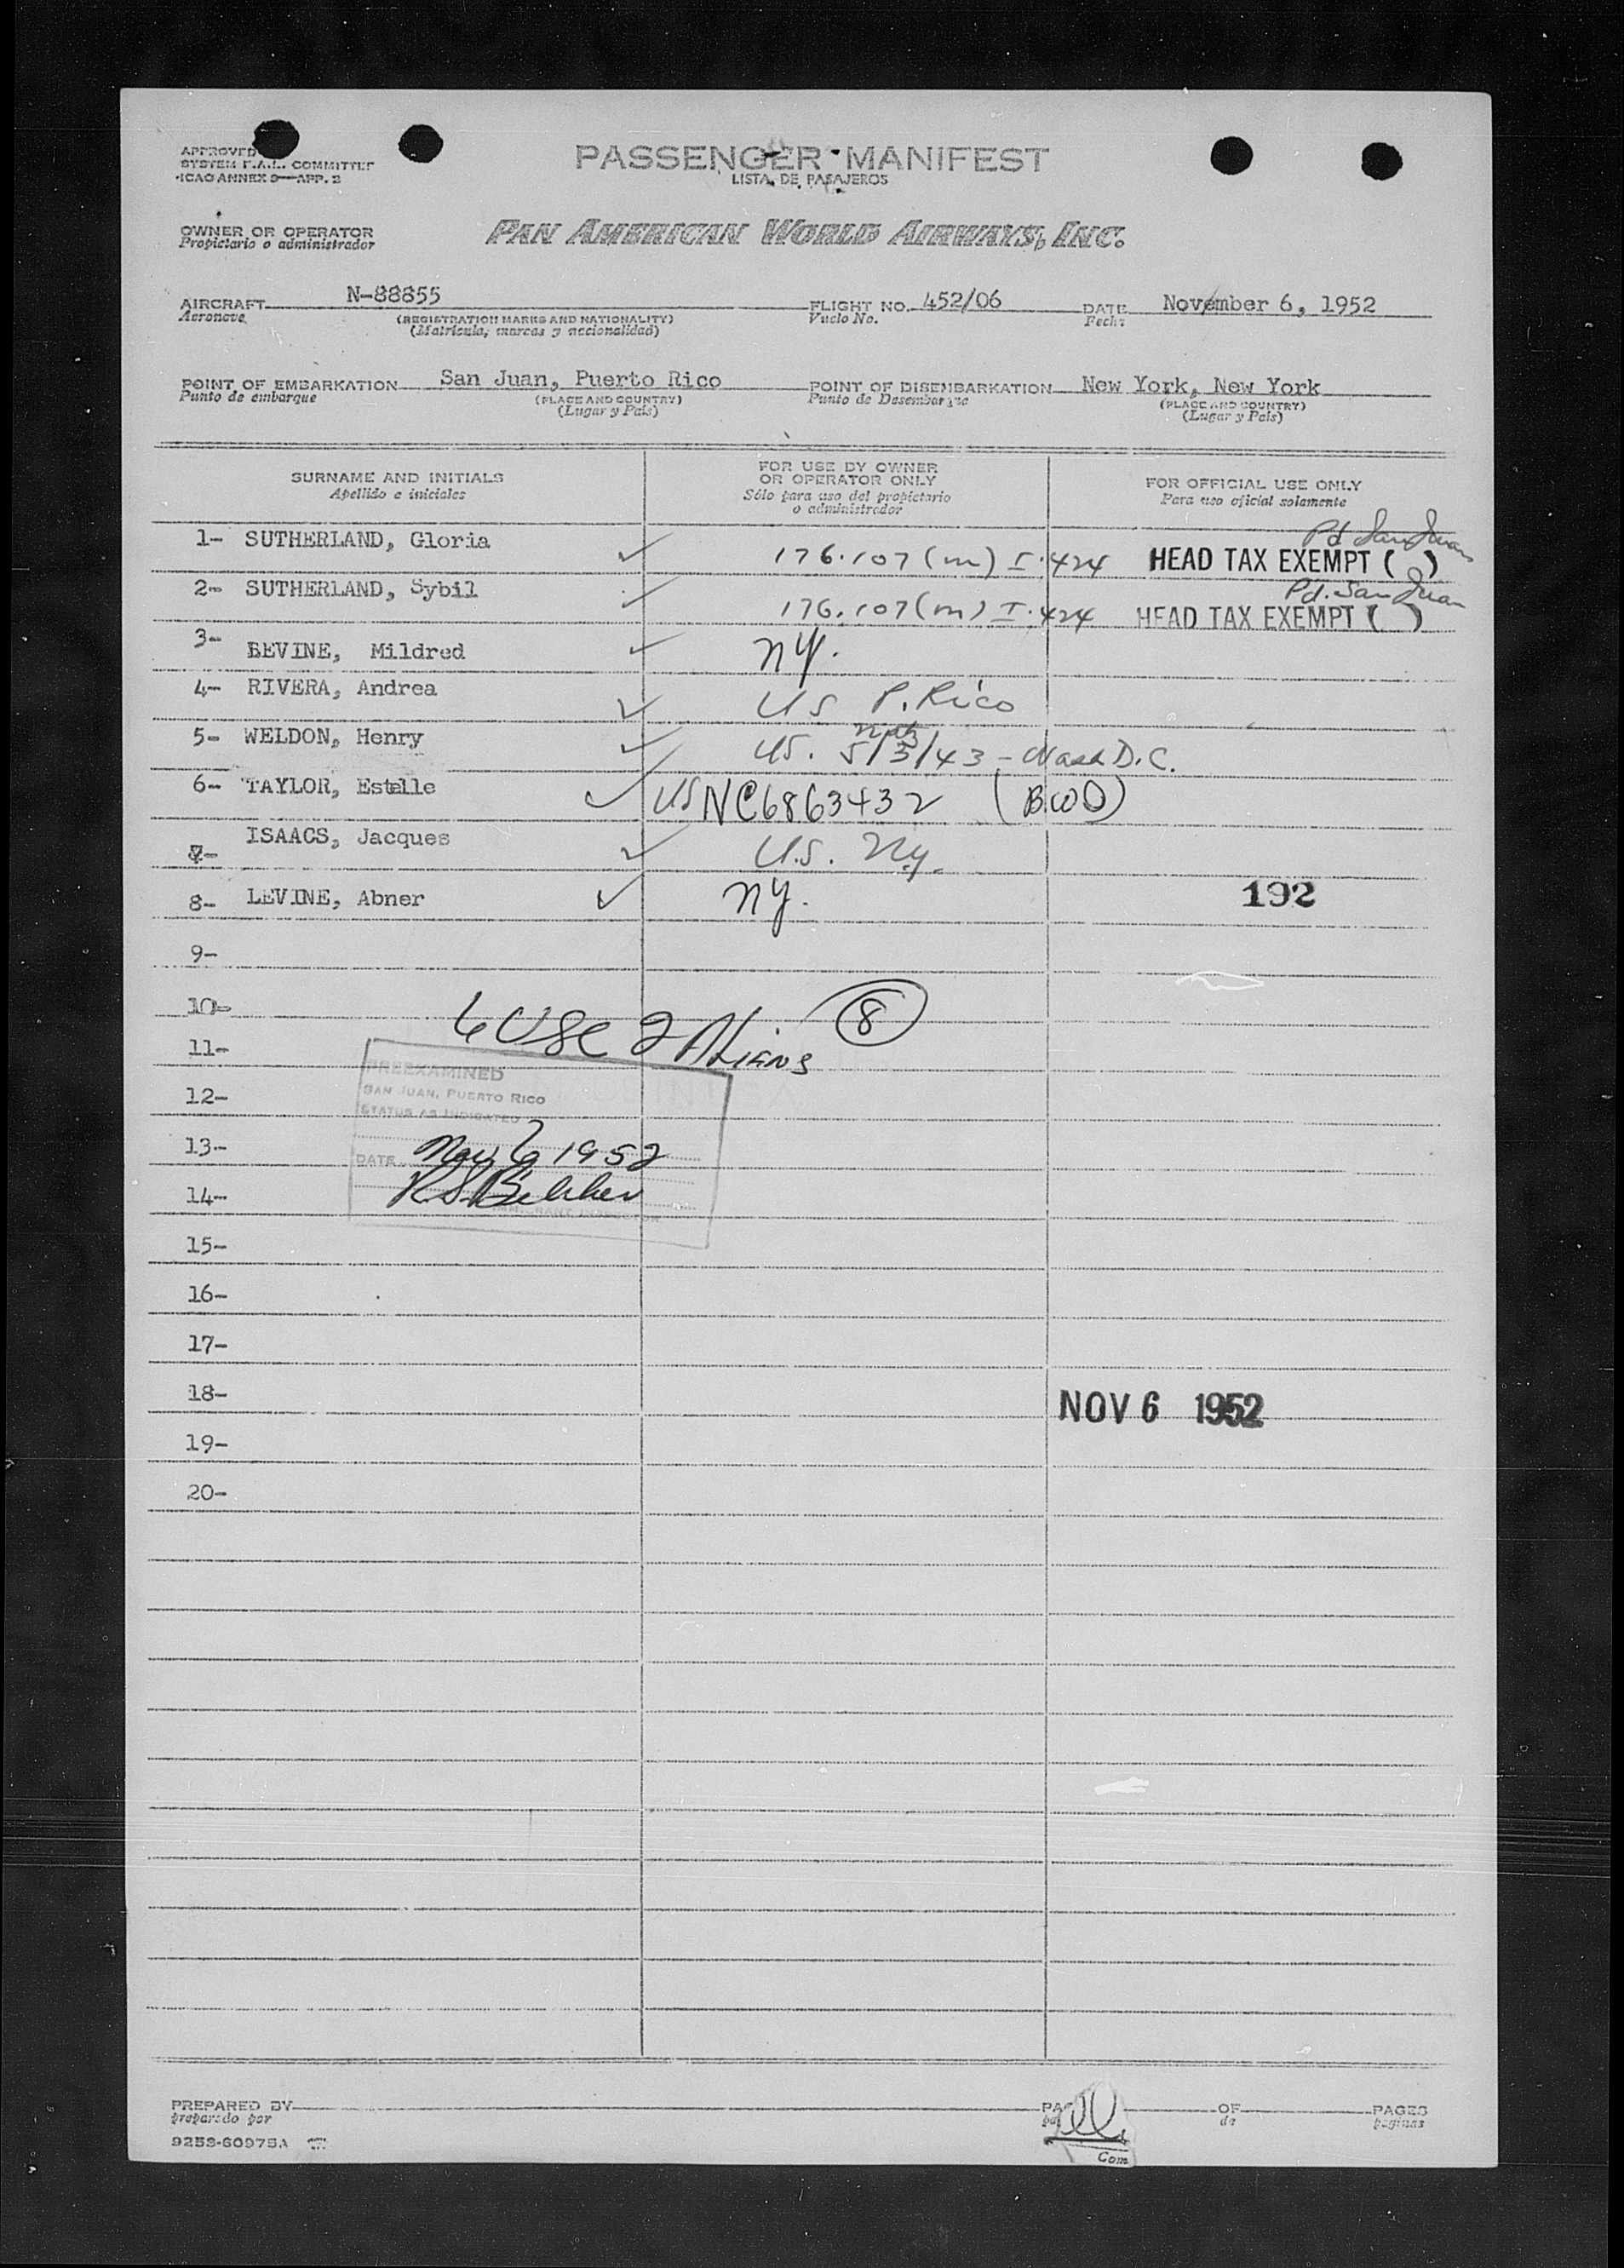 APPROVED
SYSTEM F.A.L. COMMITTEE
ICAO ANNEX 9—APP. 2
PASSENGER MANIFEST
LISTA DE PASAJEROS
OWNER OR OPERATOR
Propietario o administrador
PAN AMERICAN WORLD AIRWAYS, INC.
AIRCRAFT N-88855 FLIGHT NO. 452/06 DATE November 6, 1952
Aeronave (REGISTRATION MARKS AND NATIONALITY) Vuelo No. Fecha
(Matrícula, marcas y nacionalidad)
POINT OF EMBARKATION San Juan, Puerto Rico POINT OF DISEMBARKATION New York, New York
Punto de embarque (PLACE AND COUNTRY) Punto de Desembarque (PLACE AND COUNTRY)
(Lugar y País) (Lugar y País)
SURNAME AND INITIALS
Apellido e iniciales
FOR USE BY OWNER
OR OPERATOR ONLY
Sólo para uso del propietario
o administrador
FOR OFFICIAL USE ONLY
Para uso oficial solamente
Pd San Juan
1- SUTHERLAND, Gloria ✓ 176.107(m) I.424 HEAD TAX EXEMPT ( )
Pd. San Juan
2- SUTHERLAND, Sybil ✓ 176.107(m) I.424 HEAD TAX EXEMPT ( )
3- BEVINE, Mildred ✓ NY.
4- RIVERA, Andrea ✓ US P. Rico
5- WELDON, Henry ✓ US. natz 5/3/43 - Wash D.C.
6- TAYLOR, Estelle ✓ US NC6863432 (BWO)
7- ISAACS, Jacques ✓ U.S. Ny.
8- LEVINE, Abner ✓ NY. 192
9-
10-
6 USC 2 Aliens 8
11-
PREEXAMINED
SAN JUAN, PUERTO RICO
12-
STATUS AS INDICATED
13-
DATE Nov 6 1952
14-
IMMIGRANT INSPECTOR
15-
16-
17-
18-
NOV 6 1952
19-
20-
PREPARED BY PAGE OF PAGES
preparado por de páginas
9253-60975A
Com